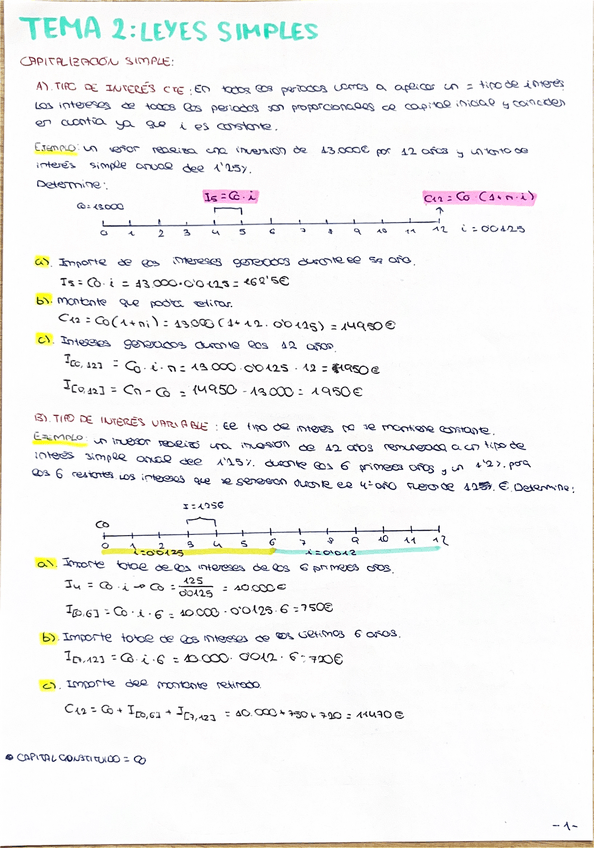 TEMA 2: LEYES SIMPLES
CAPITALIZACIÓN SIMPLE:
A). TIPO DE INTERÉS CTE: En todos los periodos vamos a aplicar un = tipo de interés
Los intereses de todos los periodos son proporcionales al capital inicial y coinciden
en cuantía ya que i es constante.
Ejemplo: un señor realiza una inversión de 13.000€ por 12 años y un tanto de
interés simple anual del 1'25%.
Determine:
I5 = C0·i
C12 = C0·(1+n·i)
C0=13000
0 1 2 3 4 5 6 7 8 9 10 11 12 i=0'0125
a). Importe de los intereses generados durante el 5º año.
I5 = C0·i = 13.000·0'0125 = 162'5€
b). Montante que podrá retirar.
C12 = C0(1+ni) = 13.000(1+12·0'0125) = 14950€
c). Intereses generados durante los 12 años.
I[0,12] = C0·i·n = 13.000·0'0125·12 = 1950€
I[0,12] = Cn - C0 = 14950 - 13.000 = 1950€
B). TIPO DE INTERÉS VARIABLE: El tipo de interés no se mantiene constante.
Ejemplo: un inversor realizó una inversión de 12 años remunerada a un tipo de
interés simple anual del 1'25% durante los 6 primeros años y un 1'2% para
los 6 restantes. Los intereses que se generaron durante el 4º año fueron de 125 €. Determine:
I=125€
C0
0 1 2 3 4 5 6 7 8 9 10 11 12
i=0'0125 i=0'012
a). Importe total de los intereses de los 6 primeros años.
I4 = C0·i → C0 = 125/0'0125 = 10.000€
I[0,6] = C0·i·6 = 10.000·0'0125·6 = 750€
b). Importe total de los intereses de los últimos 6 años.
I[7,12] = C0·i·6 = 10.000·0'012·6 = 720€
c). Importe del montante retirado.
C12 = C0 + I[0,6] + I[7,12] = 10.000+750+720 = 11470€
• CAPITAL CONSTITUIDO = C0
-1-